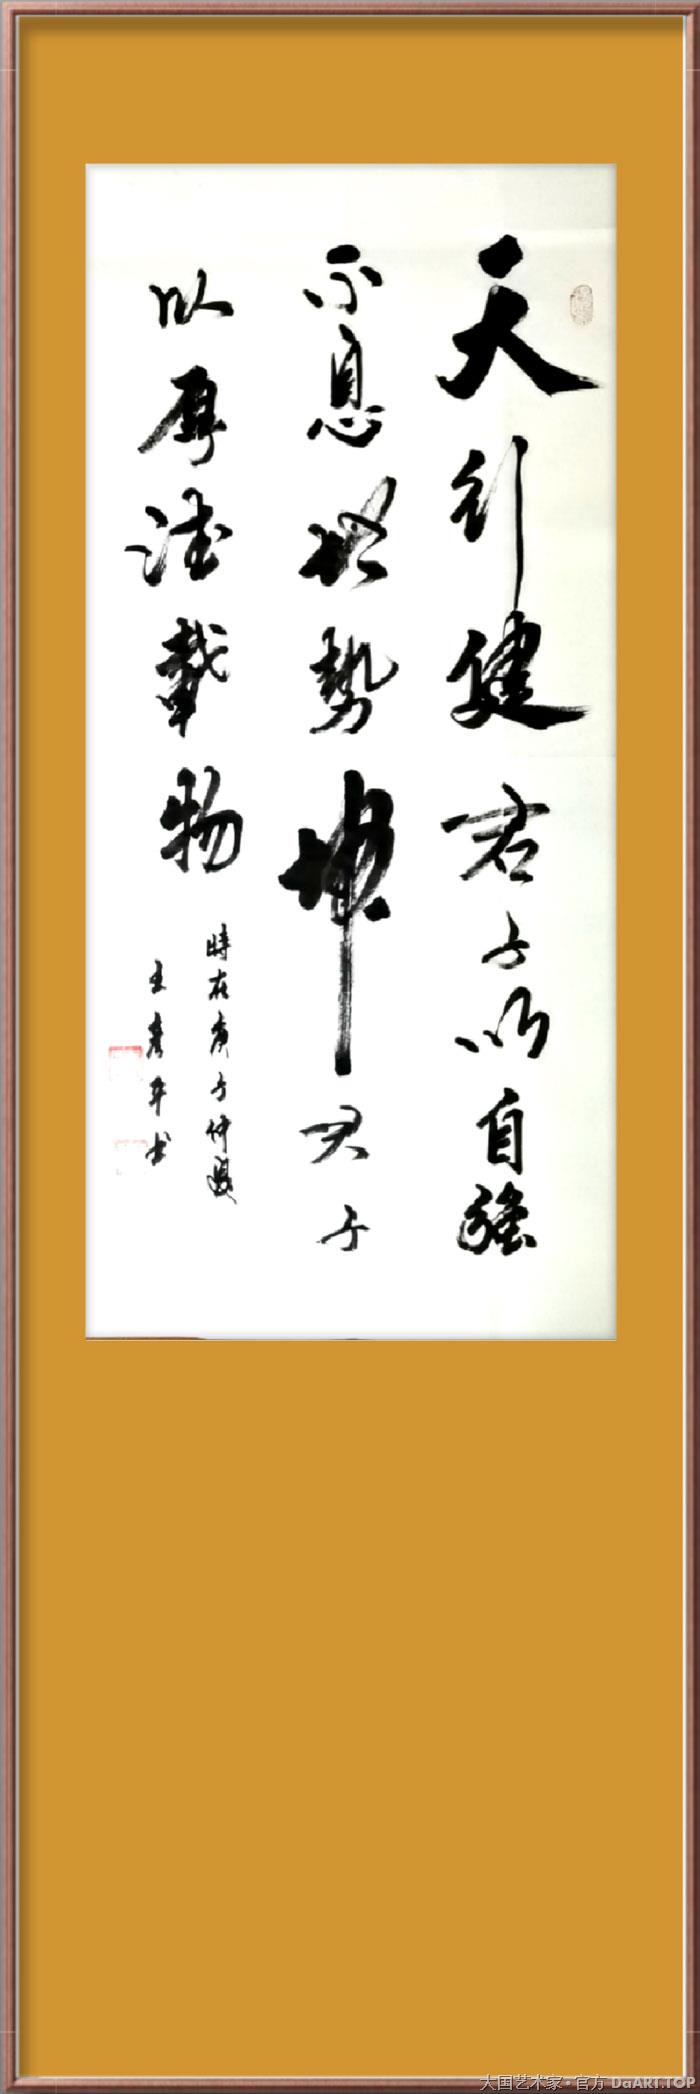 天行健君子以自強
不息地勢坤君子
以厚德載物
時在庚子仲夏
王彥平书
大国艺术家·官方 DaART.TOP